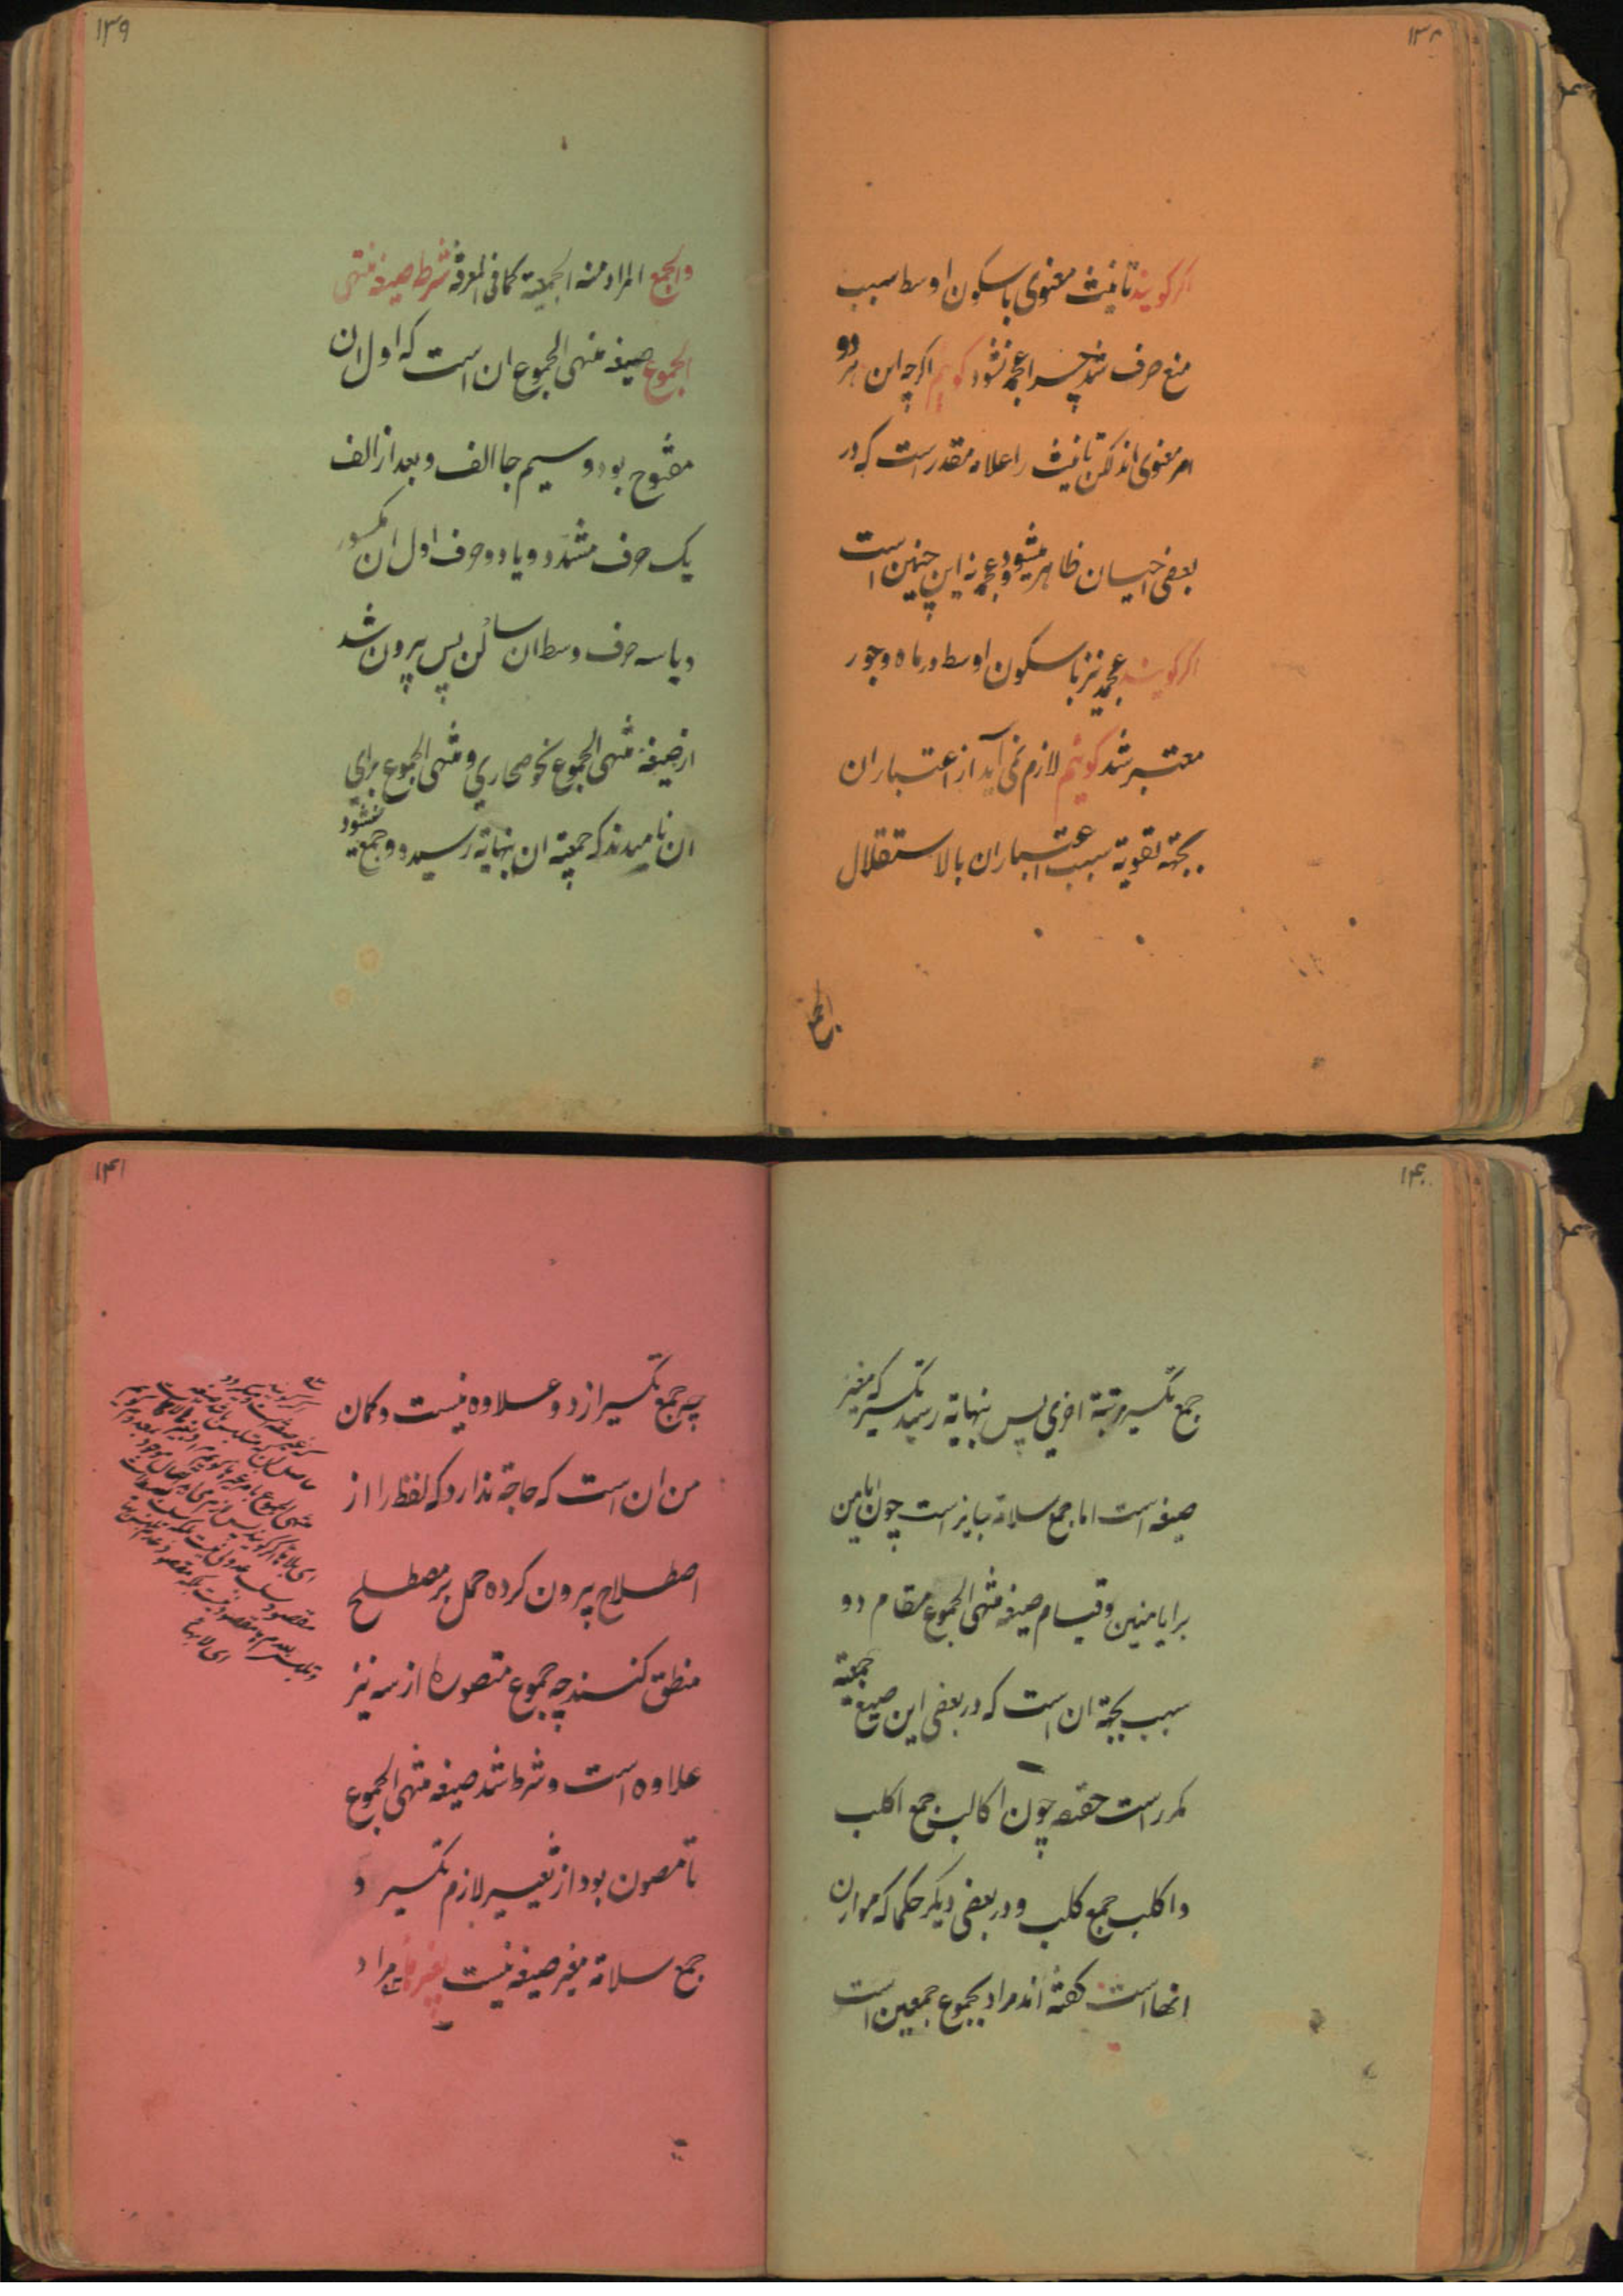 ۱۳۸
اگر گویند تانیث معنوی با سکون اوسط سبب
منع صرف شد چرا عجمه نشود گویم اگرچه این هر دو
امر معنوی اند لکن تانیث را علامه مقدر است که در
بعضی احیان ظاهر میشود و عجمه نه این چنین است
اگر گویند عجمه نیز با سکون اوسط در ماه و جور
معتبر شد گویم لازم نمی آید از اعتبار ان
بجهة تقویة سبب اعتبار ان بالاستقلال
والجمع
۱۳۹
والجمع المراد منه الجمعیة کما فی المعرفة شرط صیغه منتهی
الجموع صیغه منتهی الجموع ان است که اول ان
مفتوح بود و سیم جا الف و بعد از الف
یک حرف مشدد و یا دو حرف اول ان مکسور
و یا سه حرف وسط ان ساکن پس بیرون شد
از صیغه منتهی الجموع نحو صحاری و منتهی الجموع برای
ان نامیدند که جمعیة ان بنهایة رسیده و جمع نمیشود
۱۴۰
جمع تکسیر مرتبة اخری پس بنهایة رسید تکسیر که مغیر
صیغه است اما جمع سلامة جایز است چون ایامن
برایامنین و قیام صیغه منتهی الجموع مقام دو
سبب بجهة ان است که در بعضی این صیغ جمعیة
مکرر است حقیقه چون اکالب جمع اکلب
و اکلب جمع کلب و در بعضی دیگر حکما که موازن
انها است گفته اند مراد بجموع جمعین است
۱۴۱
چه جمع تکسیر از دو علاوه نیست و گمان
من ان است که حاجة ندارد که لفظ را از
اصطلاح بیرون کرده حمل بر مصطلح
منطق کنند چه جموع متصوره از سه نیز
علاوه است و شرط شد صیغه منتهی الجموع
تا مصون بود از تغییر لازم تکسیر و
جمع سلامة مغیر صیغه نیست بغیر هاء مراد